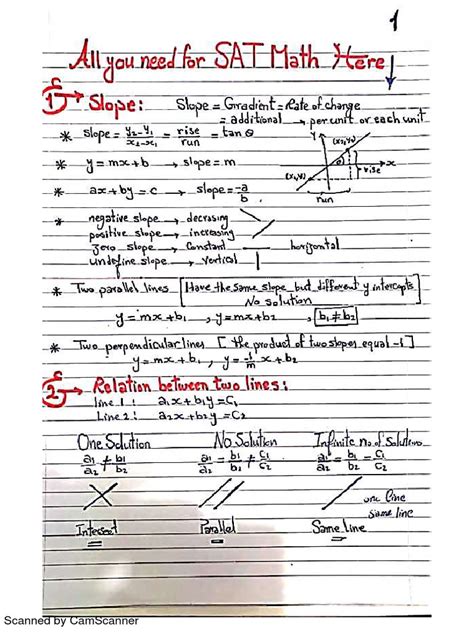 1
All you need for SAT Math Here
1 Slope: Slope = Gradient = Rate of change
= additional → per unit or each unit
* slope = y2-y1/x2-x1 = rise/run = tan θ
y (x2,y2)
* y = mx + b → slope = m
θ x
rise
(x1,y1)
* ax + by = c → slope = -a/b
run
* negative slope → decrasing
positive slope → increasing
zero slope → Constant — horizontal
undefine slope → vertical |
* Two parallel lines [Have the same slope but different y intercepts
No solution]
y = mx + b1 , y = mx + b2 , b1 ≠ b2
* Two perpendicular lines [the product of two slopes equal -1]
y = mx + b1 , y = -1/m x + b2
2 Relation between two lines:
line 1: a1x + b1y = C1
Line 2: a2x + b2y = C2
One Solution No Solution Infinite no. of Solutions
a1/a2 ≠ b1/b2 a1/a2 = b1/b2 ≠ C1/C2 a1/a2 = b1/b2 = C1/C2
one line
same line
Intersect Parallel Same line
Scanned by CamScanner